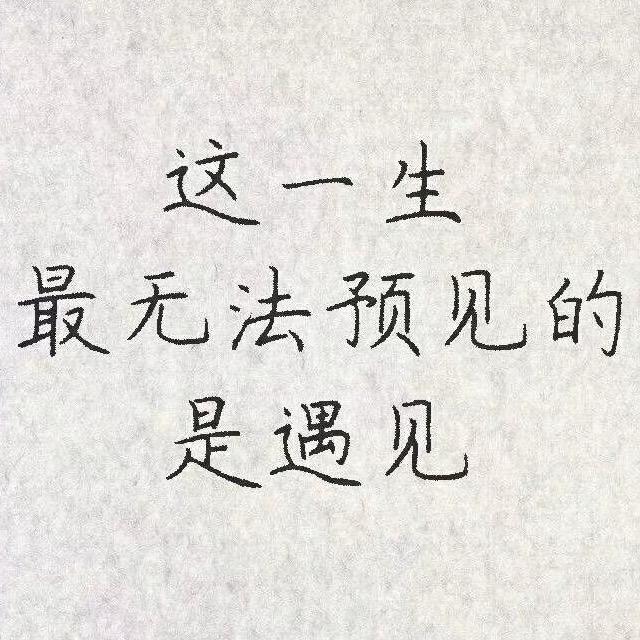 这一生
最无法预见的
是遇见